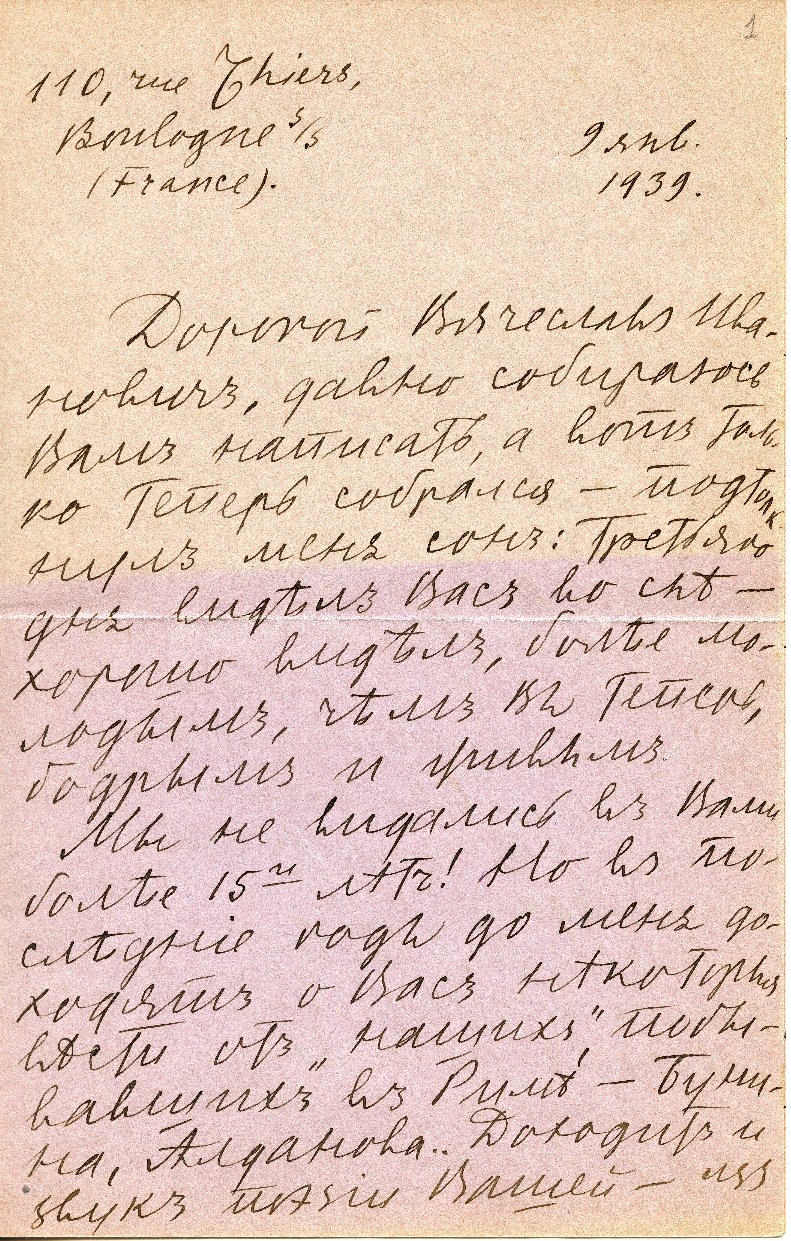 1
110, rue Thiers,
Boulogne s/S
(France).
9 янв.
1939.
Дорогой Вячеславъ Ива-
новичъ, давно собираюсь
Вамъ написать, а вотъ толь-
ко теперь собрался — подтолк-
нулъ меня сонъ: третьяго
дня видѣлъ Васъ во снѣ —
хорошо видѣлъ, болѣе мо-
лодымъ, чѣмъ Вы теперь,
бодрымъ и живымъ.
Мы не видались съ Вами
болѣе 15ти лѣтъ! Но въ по-
слѣдніе годы до меня до-
ходятъ о Васъ нѣкоторыя
вѣсти отъ „нашихъ“, побы-
вавшихъ въ Римѣ — Буни-
на, Алданова.. Доходитъ и
звукъ поэзіи Вашей — изъ